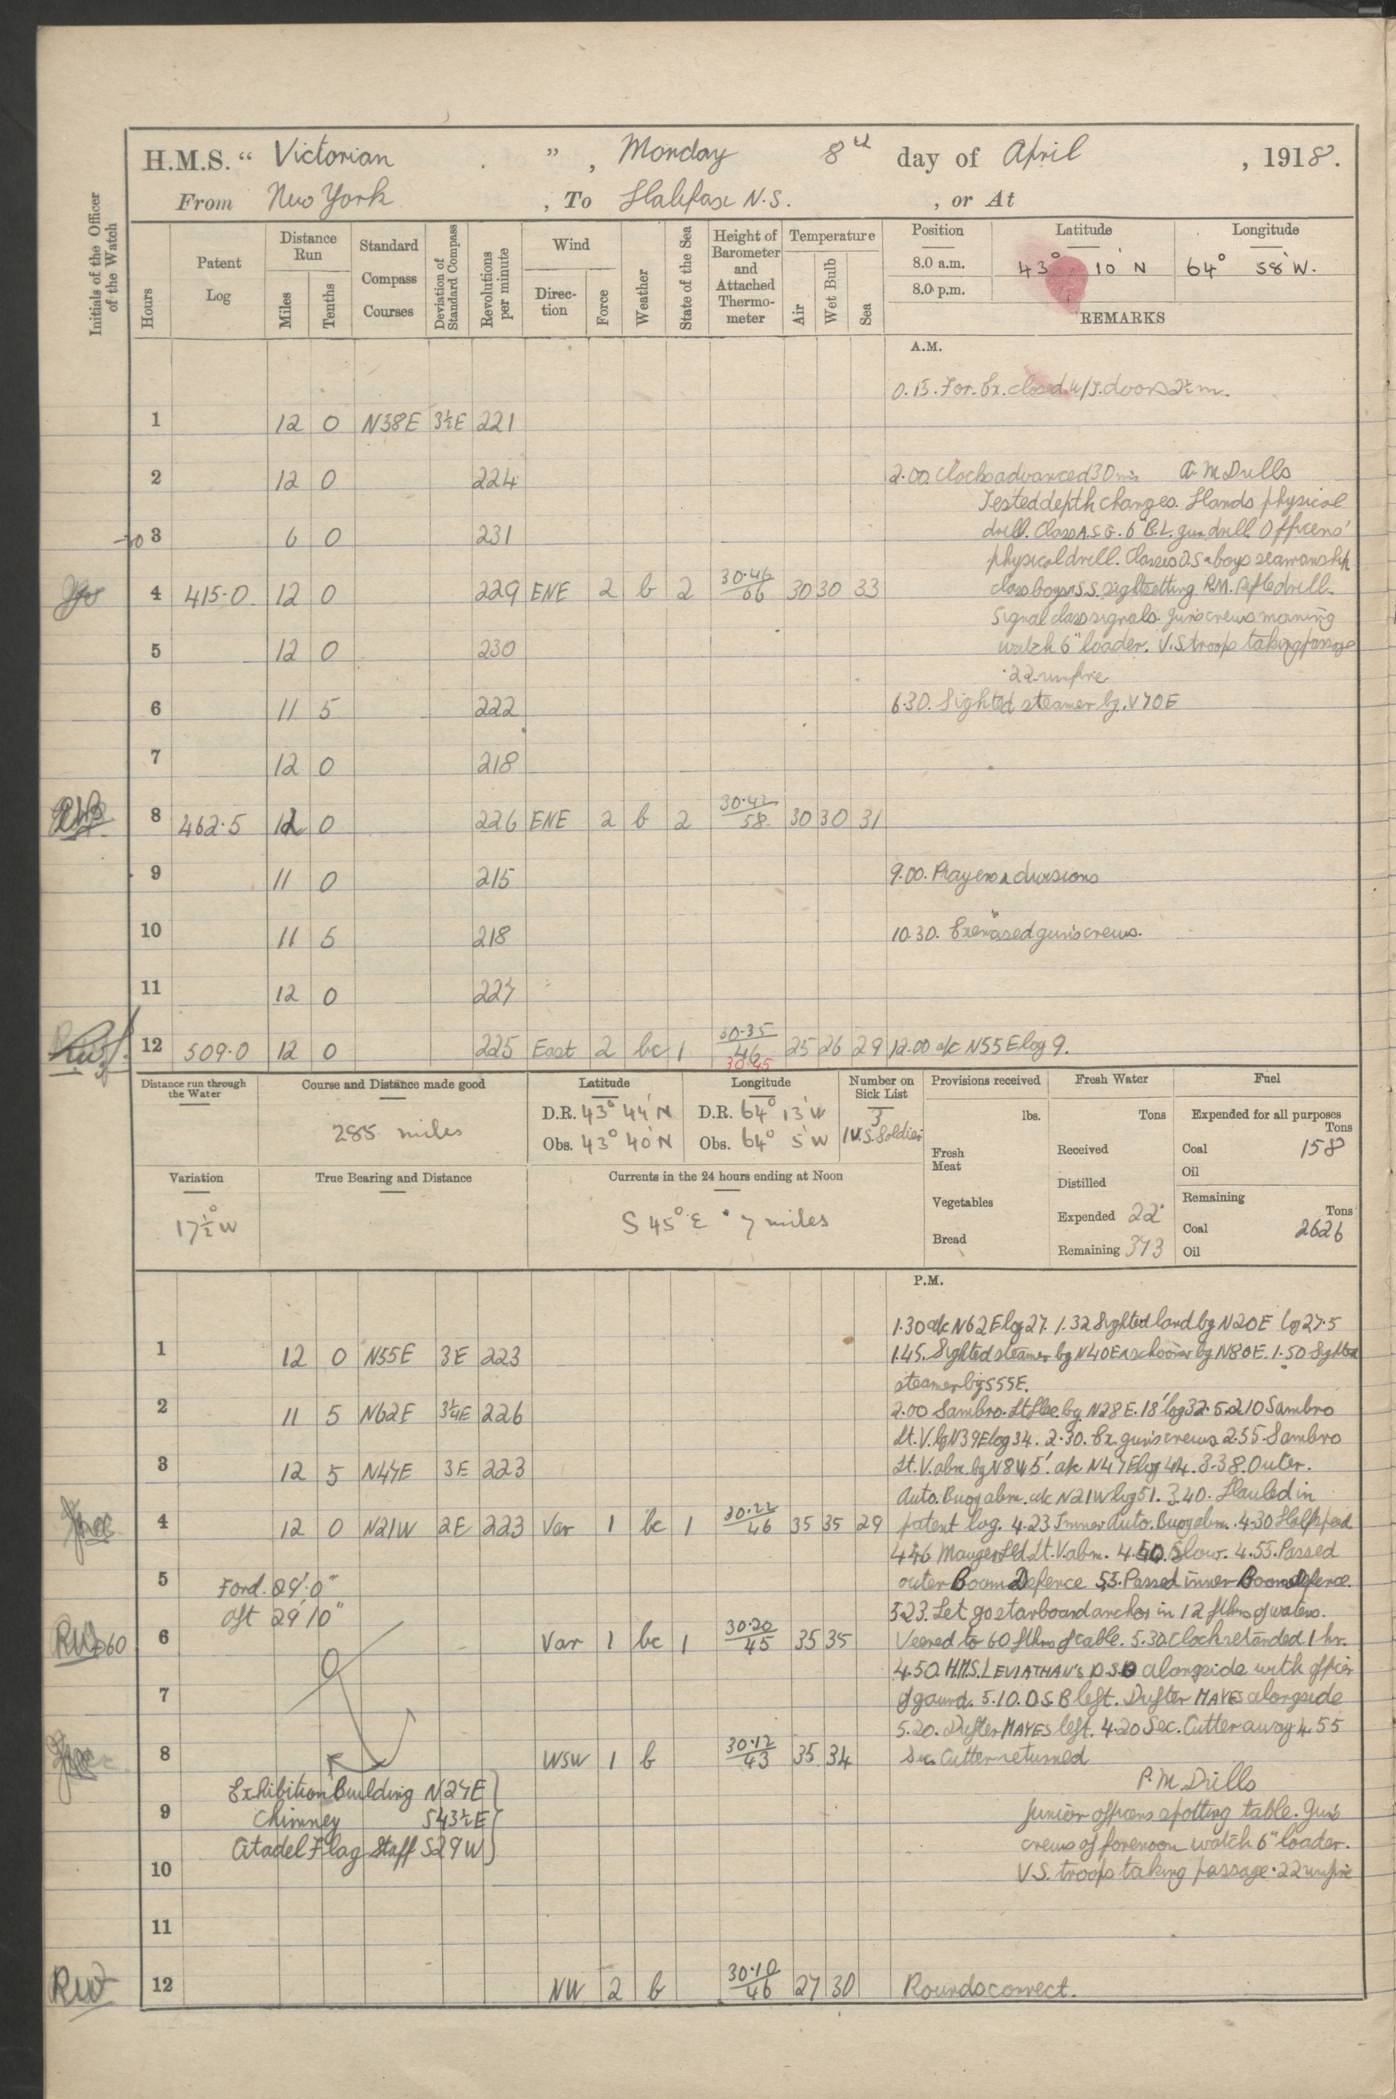 H.M.S. “ Victorian ” , Monday 8th day of April , 1918.
From New York , To Halifax N.S. , or At
Initials of the Officer of the Watch
Hours
Patent Log
Distance Run
Miles
Tenths
Standard Compass Courses
Deviation of Standard Compass
Revolutions per minute
Wind
Direction
Force
Weather
State of the Sea
Height of Barometer and Attached Thermometer
Temperature
Air
Wet Bulb
Sea
Position Latitude Longitude
8.0 a.m. 43° 10' N 64° 58' W.
8.0 p.m.
REMARKS
A.M.
0.15. For. Ex. closed w/t. doors 2½m.
1 12 0 N38E 3½E 221
2 12 0 224 2.00. Clocks advanced 30 mis A.M Drills
Tested depth charges. Hands physical
3 6 0 231 drill. Class A.S.G. 6" B.L. gun drill Officers'
physical drill. Classes O.S & boys seamanship
4 415.0 12 0 229 ENE 2 b 2 30.46/66 30 30 33 class boys S.S. sightsetting R.M. rifle drill.
Signal class signals. Guns crews morning
5 12 0 230 watch 6" loader. U.S troops taking passage
.22 rnfire
6 11 5 222 6.30. Sighted steamer bg. N70E
7 12 0 218
8 462.5 12 0 226 ENE 2 b 2 30.42/58 30 30 31
9 11 0 215 9.00. Prayers & divisions
10 11 5 218 10.30. Exercised gun's crews.
11 12 0 227
12 509.0 12 0 225 East 2 bc 1 30.35/46 25 26 29 12.00 a/c N55E log 9.
30.45
Distance run through the Water
Course and Distance made good
285 miles
Latitude
D.R. 43° 44' N
Obs. 43° 40' N
Longitude
D.R. 64° 13' W
Obs. 64° 5' W
Number on Sick List
3
1 U.S. Soldier
Provisions received
lbs.
Fresh Meat
Vegetables
Bread
Fresh Water
Tons
Received
Distilled
Expended 22
Remaining 373
Fuel
Expended for all purposes
Tons
Coal 158
Oil
Remaining
Tons
Coal 2626
Oil
Variation
17½° W
True Bearing and Distance
Currents in the 24 hours ending at Noon
S 45° E 7 miles
P.M.
1.30 a/c N62E log 27. 1.32 Sighted land bg N20E log 27.5
1 12 0 N55E 3E 223 1.45. Sighted steamer bg N40E & schooner bg N80E. 1.50 Sighted
steamer bg S55E.
2 11 5 N62E 3¼E 226 2.00 Sambro. Lt Hse bg N28E. 18' log 32.5. 2.10 Sambro
Lt. V. bg N39E log 34. 2.30. Ex. gun's crews 2.55. Sambro
3 12 5 N47E 3E 223 Lt. V. abm. bg N8W 5'. a/c N47E log 44. 3.38. Outer.
Auto. Buoy abm. a/c N21W log 51. 3.40. Hauled in
4 12 0 N21W 2E 223 Var 1 bc 1 30.22/46 35 35 29 patent log. 4.23 Inner Auto. Buoy abm. 4.30 Half speed
4.46 Maugers Ld Lt. V abm. 4.50. Slow. 4.55. Passed
5 Ford. 29'.0" outer Boom Defence 5.5. Passed inner Boom Defence.
aft 29' 10" 5.23. Let go starboard anchor in 12 fthms of waters.
6 Var 1 bc 1 30.20/45 35 35 Veered to 60 fthms of cable. 5.30. Clock retarded 1 hr.
4.50. H.M.S. LEVIATHAN's D.S.B alongside with officer
7 of gaurd. 5.10. D.S.B left. Drifter MAYES alongside
5.20. Drifter MAYES left. 4.20 Sec. Cutter away 4.55
8 WSW 1 b 30.12/43 35 34 Sec. Cutter returned
P.M. Drills
Exhibition Building N24E
9 Chimney S43½E Junior officers spotting table. Guns
Citadel Flag Staff S29W crews of forenoon watch 6" loader.
10 U.S. troops taking passage .22 rnfire
11
12 NW 2 b 30.10/46 27 30 Rounds correct.
RW